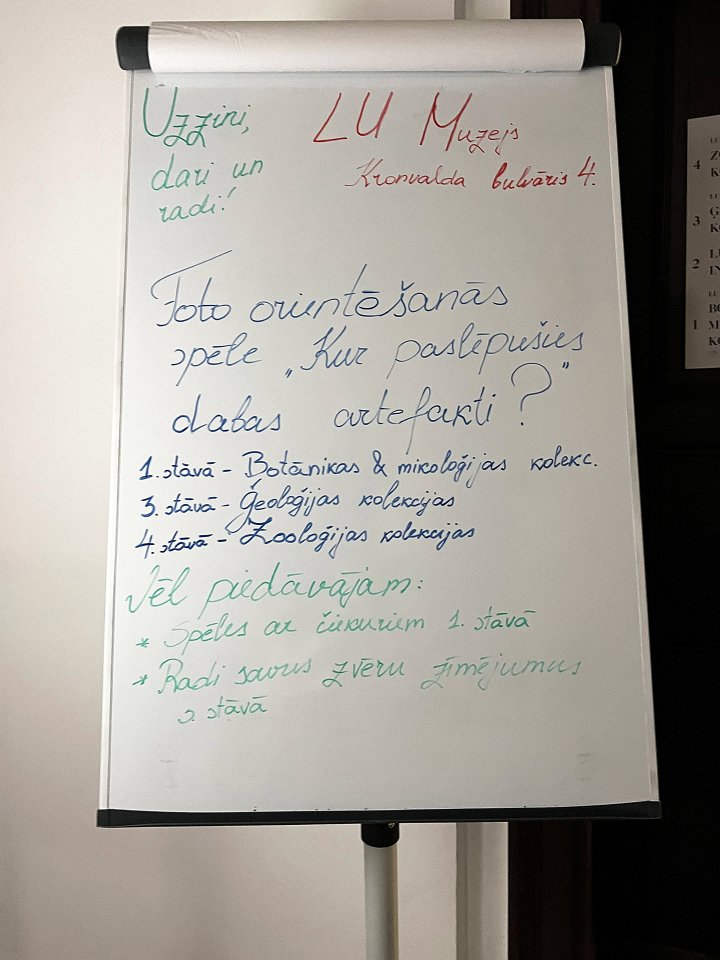 Uzzini,
dari un
radi!
LU Muzejs
Kronvalda bulvāris 4.
Foto orientēšanās
spēle „Kur paslēpušies
dabas artefakti?"
1. stāvā - Botānikas & mikoloģijas kolekc.
3. stāvā - Ģeoloģijas kolekcijas
4. stāvā - Zooloģijas kolekcijas
Vēl piedāvājam:
* Spēles ar čiekuriem 1. stāvā
* Radi savus zvēru zīmējumus
2. stāvā
4
3
2
1